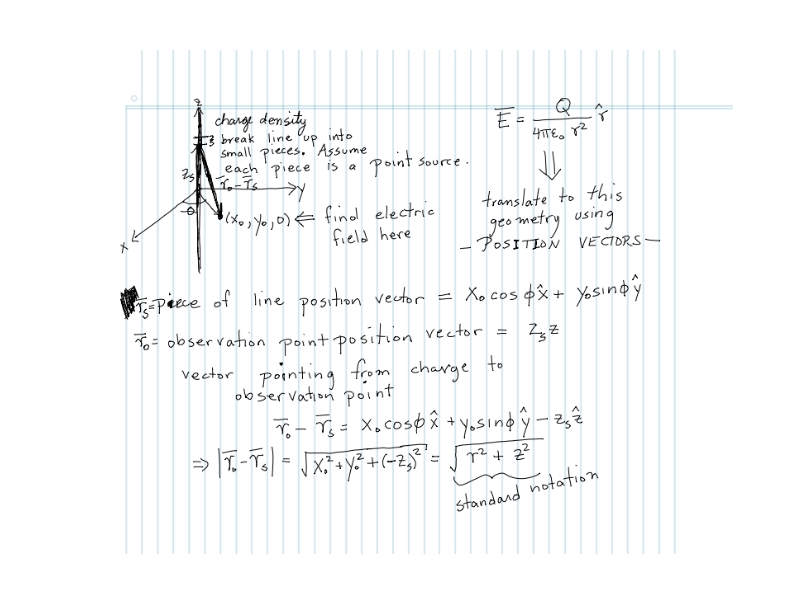 z
charge density
break line up into
small pieces. Assume
each piece is a point source.
Zs
r̄o - r̄s
y
(xo, yo, 0) ⇐ find electric
field here
x
Ē = Q / 4πεo r² r̂
⇓
translate to this
geometry using
- POSITION VECTORS -
r̄s = piece of line position vector = Xo cos ϕ x̂ + yo sin ϕ ŷ
r̄o = observation point position vector = Zs z
vector pointing from charge to
observation point
r̄o - r̄s = Xo cos ϕ x̂ + yo sin ϕ ŷ - zs ẑ
⇒ |r̄o - r̄s| = √(Xo² + yo² + (-zs)²) = √(r² + z²)
standard notation